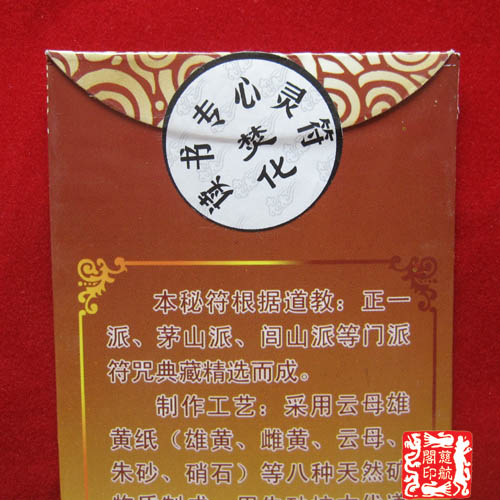 书专心灵符
焚化
本秘符根据道教：正一
派、茅山派、闾山派等门派
符咒典藏精选而成。
制作工艺：采用云母雄
黄纸（雄黄、雌黄、云母、
朱砂、硝石）等八种天然矿
慈航
閣印